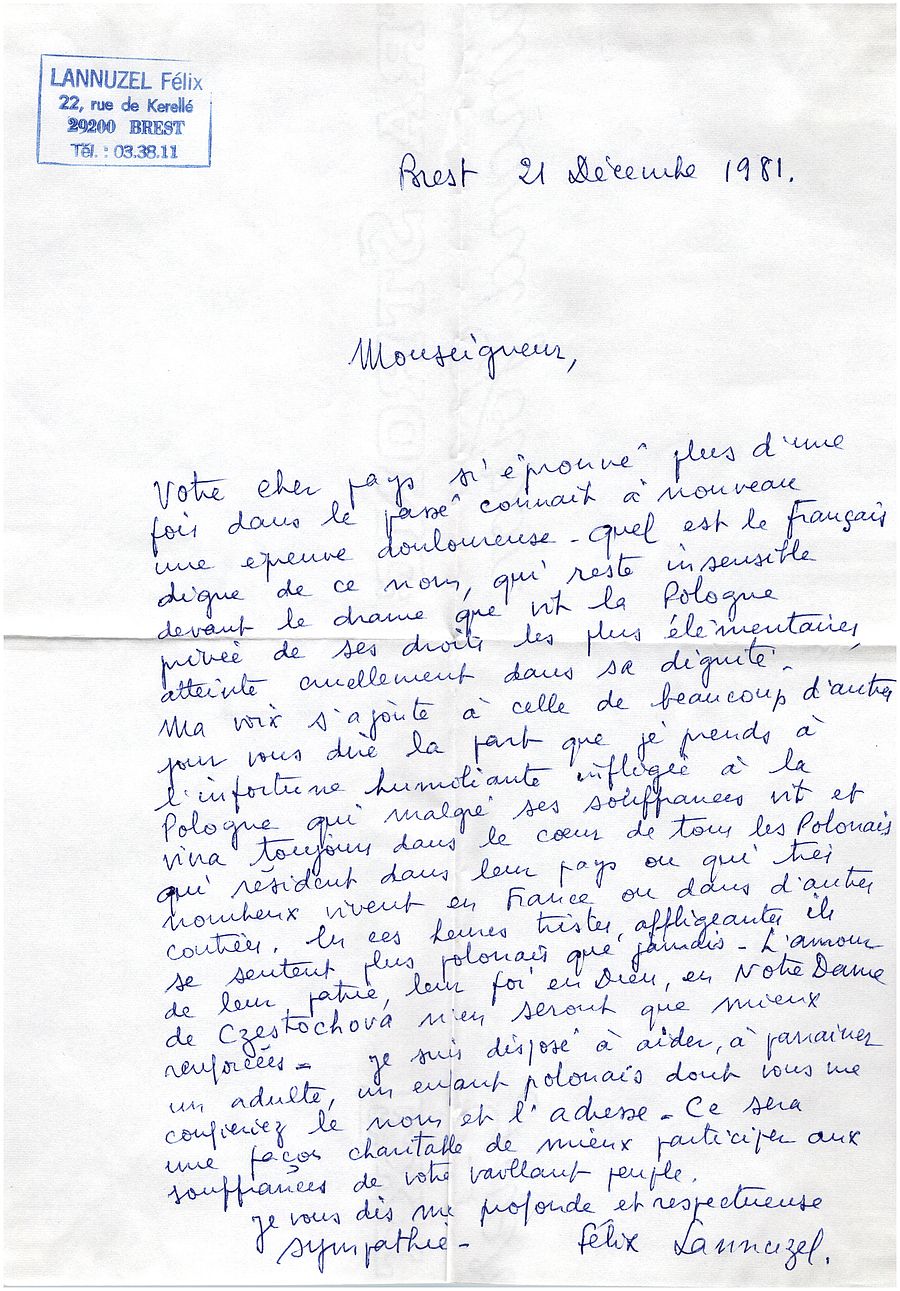 LANNUZEL Félix
22, rue de Kerellé
29200 BREST
Tél. : 03.38.11
Brest 21 Décembre 1981.
Monseigneur,
Votre cher pays si éprouvé plus d'une
fois dans le passé connait à nouveau
une epreuve douloureuse - Quel est le français
digne de ce nom, qui reste insensible
devant le drame que vit la Pologne
privée de ses droits les plus élémentaires,
atteinte cruellement dans sa dignité -
Ma voix s'ajoute à celle de beaucoup d'autres
pour vous dire la part que je prends à
l'infortune humiliante infligée à la
Pologne qui malgré ses souffrances vit et
vivra toujours dans le cœur de tous les Polonais
qui résident dans leur pays ou qui très
nombreux vivent en France ou dans d'autres
contrées. En ces heures tristes, affligeantes ils
se sentent plus polonais que jamais - L'amour
de leur patrie, leur foi en Dieu, en Notre Dame
de Czestochova n'en seront que mieux
renforcées - Je suis disposé à aider, à parrainer
un adulte, un enfant polonais dont vous me
confieriez le nom et l'adresse - Ce sera
une façon charitable de mieux participer aux
souffrances de votre vaillant peuple.
Je vous dis ma profonde et respectueuse
sympathie - Félix Lannuzel.